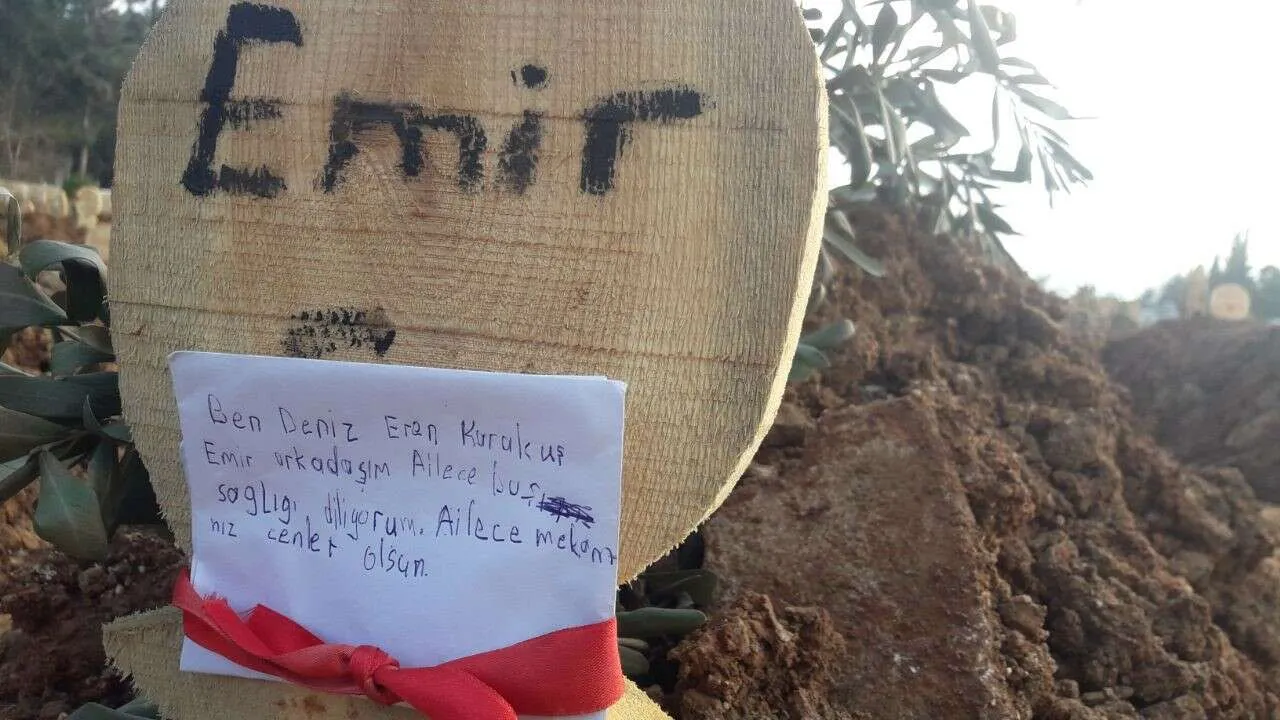 Emir
Ben Deniz Eran Karakuş
Emir arkadaşım Ailece buş
sağlıgı diliyorum. Ailece mekanı
nız cenlet olsun.